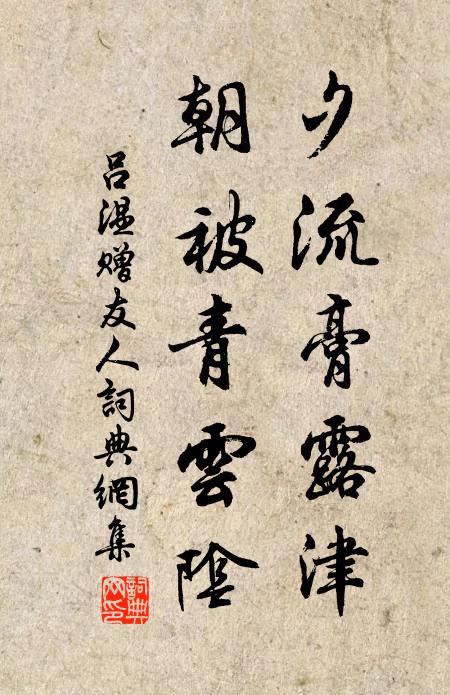 夕流膏露津
朝被青雲陰
呂温贈友人詞典網集
詞典网印